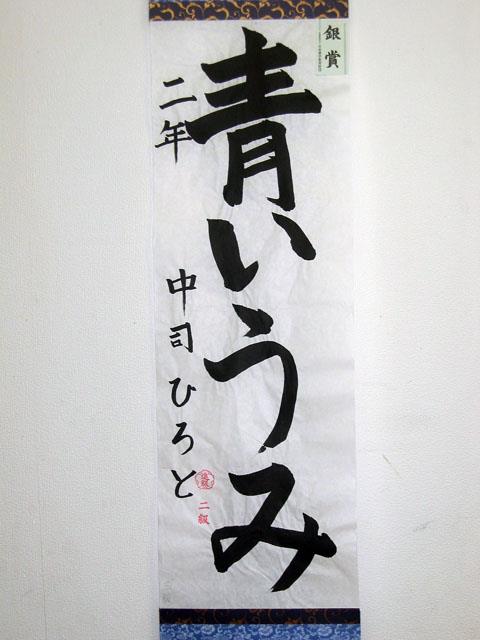 銀賞
青いうみ
二年
中司ひろと
進級
二級